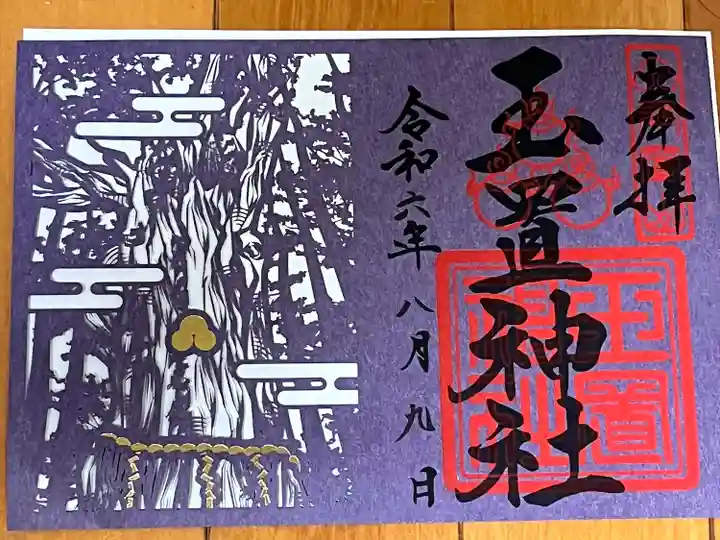 奉拝
玉置神社
令和六年八月九日
玉置
神社